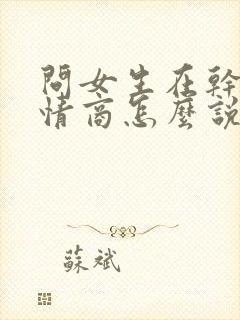 問女生在幹
情商怎麼說
蘇斌